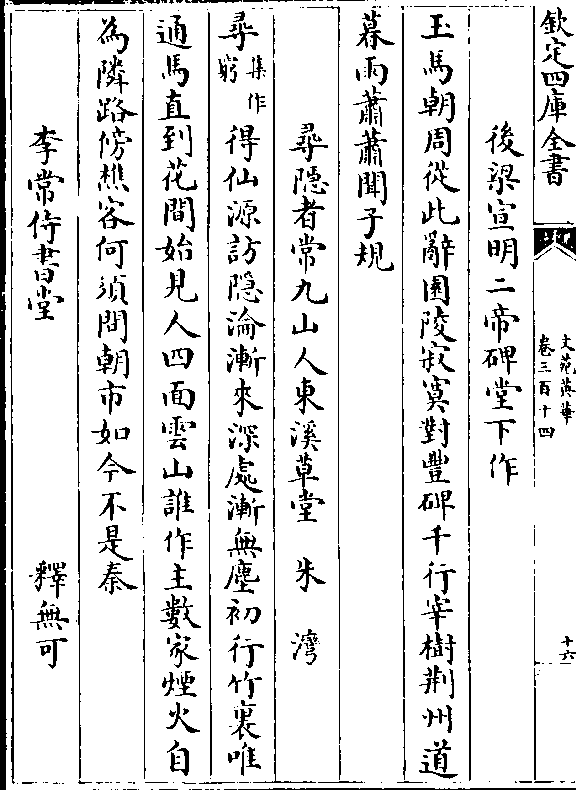 欽定四庫全書
文苑英華
卷三百十四
十六
後梁宣明二帝碑堂下作
玉馬朝周從此辭園陵寂寞對豐碑千行宰樹荆州道
暮雨蕭蕭聞子規
尋隱者常九山人東溪草堂 朱灣
尋集作窮得仙源訪隱淪漸來深處漸無塵初行竹裏唯
通馬直到花間始見人四面雲山誰作主數家煙火自
為隣路傍樵客何須問朝市如今不是秦
李常侍書堂 釋無可